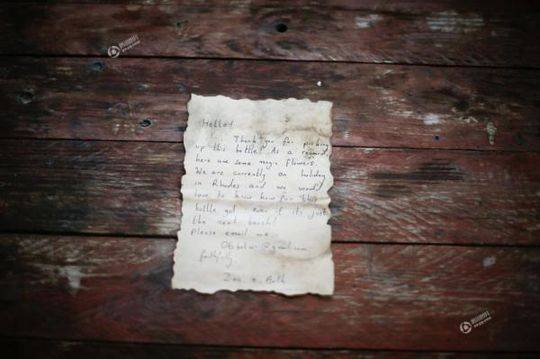 Hello!
Thank you for picking
up this bottle! As a reward
here are some magic flowers.
We are currently on holiday
in Rhodes and we would
love to know how far this
bottle got even if its just
the next beach!
Please email me
@gmail.com
faithfully
Beth